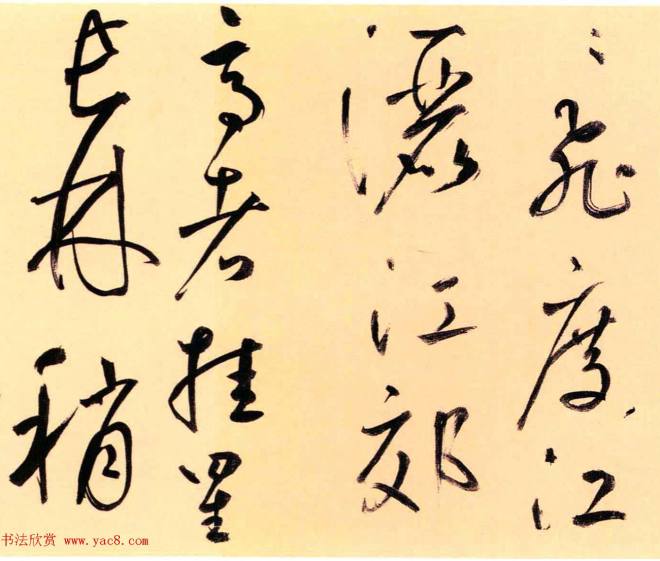 〻飛度江
灑江郊
高者挂罣
長林稍
书法欣赏 www.yac8.com